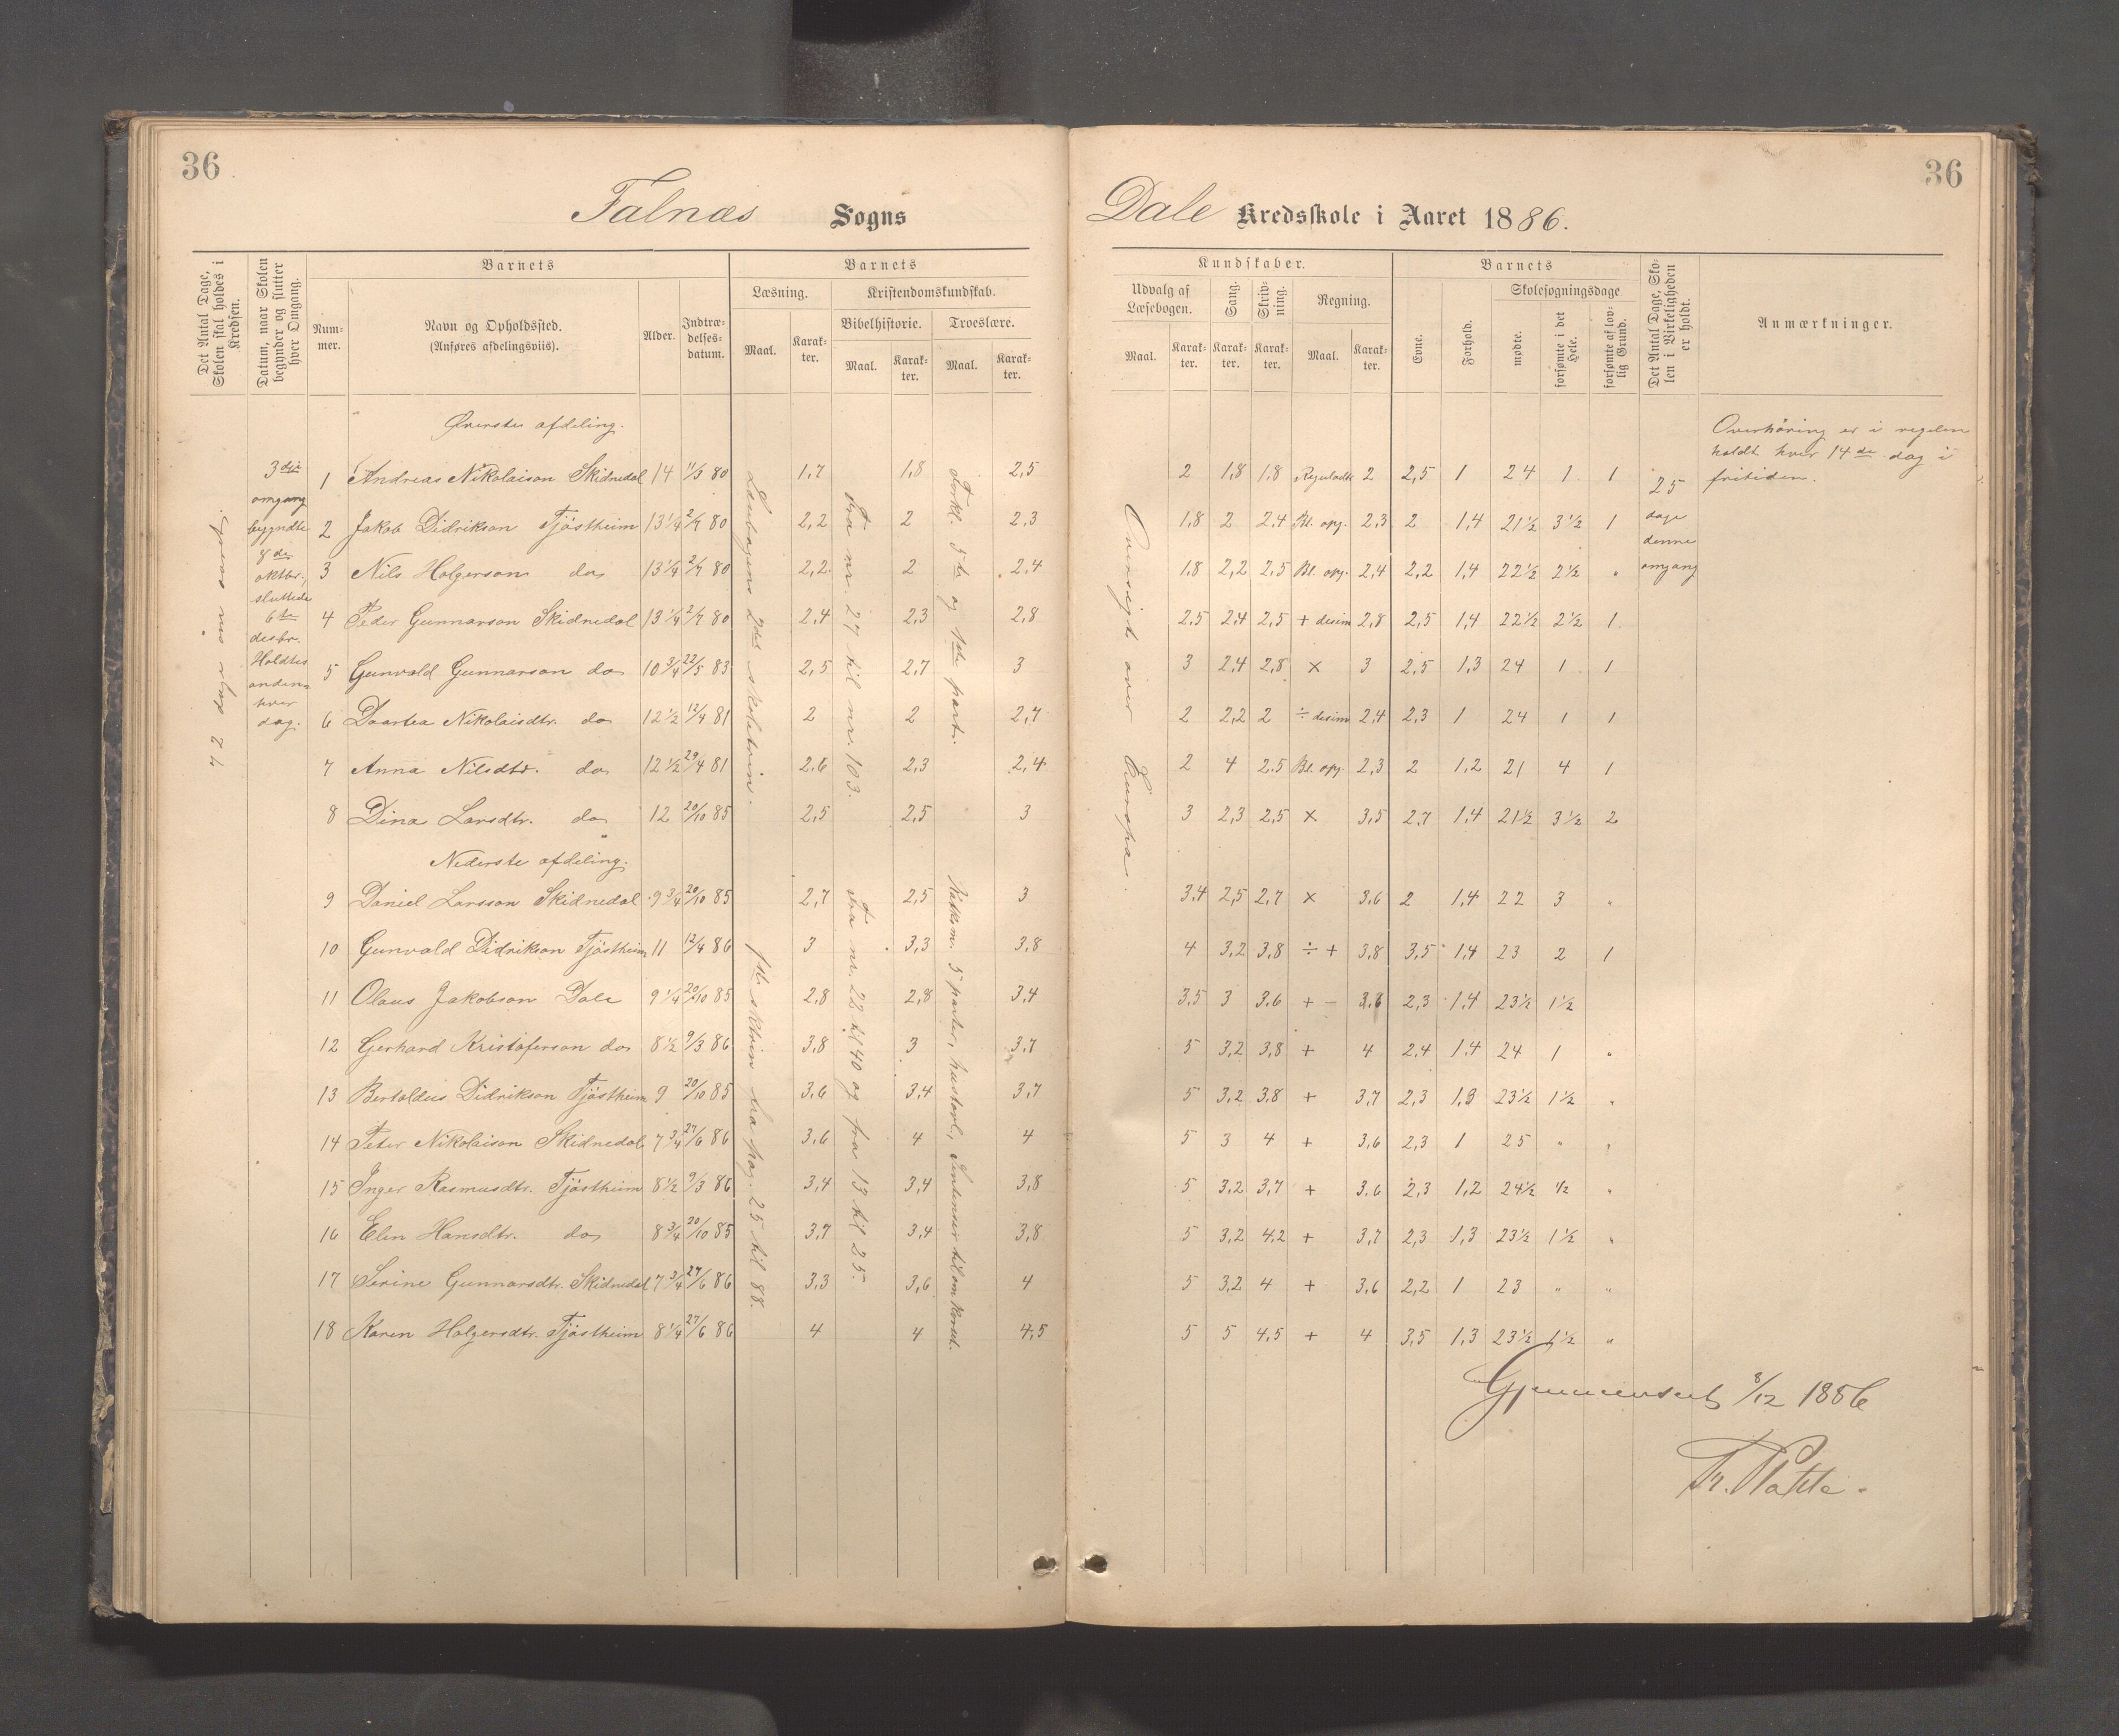 36
36
Falnæs Sogns
Dale Kredsskole i Aaret 1886.
Det Antal Dage, Skolen skal holdes i Kredsen.
Datum, naar Skolen begynder og slutter hver Omgang.
Barnets
Num-mer.
Navn og Opholdssted.
(Anføres afdelingsviis).
Alder.
Indtræ-delses-datum.
Barnets
Læsning.
Maal.
Karak-ter.
Kristendomskundskab.
Bibelhistorie.
Maal.
Karak-ter.
Troeslære.
Maal.
Karak-ter.
Kundskaber.
Udvalg af Læsebogen.
Maal.
Karak-ter.
Sang.
Karak-ter.
Skriv-ning.
Karak-ter.
Regning.
Maal.
Karak-ter.
Barnets
Evne.
Forhold.
Skolesøgningsdage
mødte.
forsømte i det Hele.
forsømte af lov-lig Grund.
Det Antal Dage, Sko-len i Virkeligheden er holdt.
Anmærkninger.
3die
omgang
begyndte
8de
oktbr.,
sluttede
6te
desbr.
Holdtes
anden-
hver
dag.
Øverste afdeling.
1 Andreas Nikolaison Skidnedal 14 11/3 80 1,7 1,8 2,5 2 1,8 1,8 2 2,5 1 24 1 1
2 Jakob Didrikson Tjöstheim 13 1/4 2/7 80 2,2 2 2,3 1,8 2 2,4 Bl. opg. 2,3 2 1,4 21 1/2 3 1/2 1
3 Nils Holgerson do 13 1/4 2/7 80 2,2 2 2,4 1,8 2,2 2,5 Bl. opg. 2,4 2,2 1,4 22 1/2 2 1/2 "
4 Peder Gunnarson Skidnedal 13 1/4 2/7 80 2,4 2,3 2,8 2,5 2,4 2,5 + desim 2,8 2,5 1,4 22 1/2 2 1/2 1
5 Gunvald Gunnarson do 10 3/4 22/5 83 2,5 2,7 3 3 2,4 2,8 × 3 2,5 1,3 24 1 1
6 Daartea Nikolaisdtr. do 12 1/2 12/4 81 2 2 2,7 2 2,2 2 ÷ desim 2,4 2,3 1 24 1 1
7 Anna Nilsdtr. do 12 1/2 29/4 81 2,6 2,3 2,4 2 4 2,5 Bl. opg. 2,3 2 1,2 21 4 1
8 Dina Larsdtr. do 12 20/10 85 2,5 2,5 3 3 2,3 2,5 × 3,5 2,7 1,4 21 1/2 3 1/2 2
Nederste afdeling.
9 Daniel Larsson Skidnedal 9 3/4 20/10 85 2,7 2,5 3 3,4 2,5 2,7 × 3,6 2 1,4 22 3 "
10 Gunvald Didrikson Tjöstheim 11 12/4 86 3 3,3 3,8 4 3,2 3,8 ÷ + 3,8 3,5 1,4 23 2 1
11 Olaus Jakobson Dale 9 1/4 20/10 85 2,8 2,8 3,4 3,5 3 3,6 + - 3,6 2,3 1,4 23 1/2 1 1/2
12 Gerhard Kristoferson do 8 1/2 9/3 86 3,8 3 3,7 5 3,2 3,8 + 4 2,4 1,4 24 1 "
13 Bertoldus Didrikson Tjöstheim 9 20/10 85 3,6 3,4 3,7 5 3,2 3,8 + 3,7 2,3 1,3 23 1/2 1 1/2 "
14 Peter Nikolaison Skidnedal 7 3/4 27/6 86 3,6 4 4 5 3 4 + 3,6 2,3 1 25 " "
15 Inger Rasmusdtr. Tjöstheim 8 1/2 9/3 86 3,4 3,4 3,8 5 3,2 3,7 + 3,6 2,3 1,2 24 1/2 1/2 "
16 Elen Hansdtr. do 8 3/4 20/10 85 3,7 3,4 3,8 5 3,2 4,2 + 3,7 2,3 1,3 23 1/2 1 1/2 "
17 Serine Gunnarsdtr. Skidnedal 7 3/4 27/6 86 3,3 3,6 4 5 3,2 4 + 3,6 2,2 1 23 " "
18 Karen Holgersdtr. Tjöstheim 8 1/4 27/6 86 4 4 4,5 5 5 4,5 + 4 3,5 1,3 23 1/2 1 1/2 "
Læsebogens 2det skoletrin.
Fra nr. 27 til nr. 103.
Forkl. 5te og 1ste part.
fra pag. 25 til 88.
Fra nr. 28 til 40 og fra 13 til 25.
5 parter, hustavl.,
Oversigt over Europa.
25
dage
denne
omgang
Overhöring er i regelen
holdt hver 14de dag i
fritiden.
Gjennemseet 8/12 1886